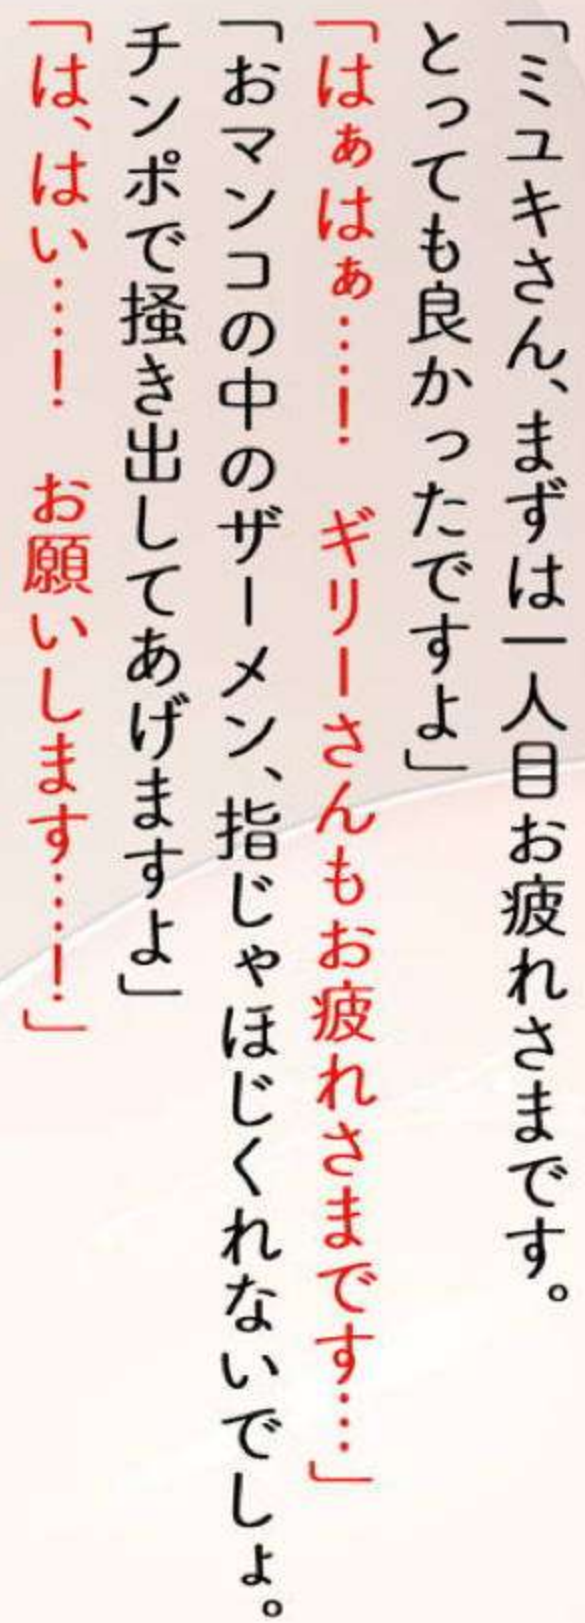 「ミユキさん、まずは一人目お疲れさまです。
とっても良かったですよ」
「はぁはぁ…！　ギリーさんもお疲れさまです…」
「おマンコの中のザーメン、指じゃほじくれないでしょ。
チンポで掻き出してあげますよ」
「は、はい…！　お願いします…！」